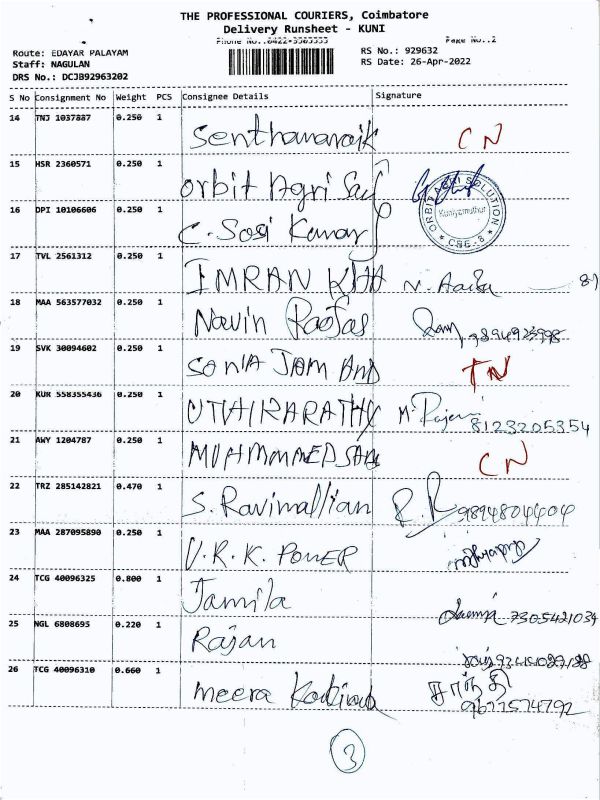 THE PROFESSIONAL COURIERS, Coimbatore
Delivery Runsheet - KUNI
Phone No.:0422-3503555 Page No.:2
Route: EDAYAR PALAYAM RS No.: 929632
Staff: NAGULAN RS Date: 26-Apr-2022
DRS No.: DCJB92963202
S No Consignment No Weight PCS Consignee Details Signature
14 TNJ 1037887 0.250 1
CN
15 HSR 2360571 0.250 1
Orbit Agri
ORBIT AGRI SOLUTION
Kuniyamuthur
CBE-8
16 DPI 10106606 0.250 1
C. Sosi Kumar
17 TVL 2561312 0.250 1
IMRAN
18 MAA 563577032 0.250 1
Navin 9894923998
19 SVK 30094602 0.250 1
SONIA JAM AND TN
20 KUR 558355436 0.250 1
UTHIRARATHY M. 8123205354
21 AWY 1204787 0.250 1
MUHAMMED CN
22 TRZ 285142821 0.470 1
S. Ravimallian 9894804404
23 MAA 287095890 0.250 1
V.R.K. POWER
24 TCG 40096325 0.800 1
Jamila
7305421034
25 NGL 6808695 0.220 1
Rajan
26 TCG 40096310 0.660 1
meera சாந்தி
9677574792
3